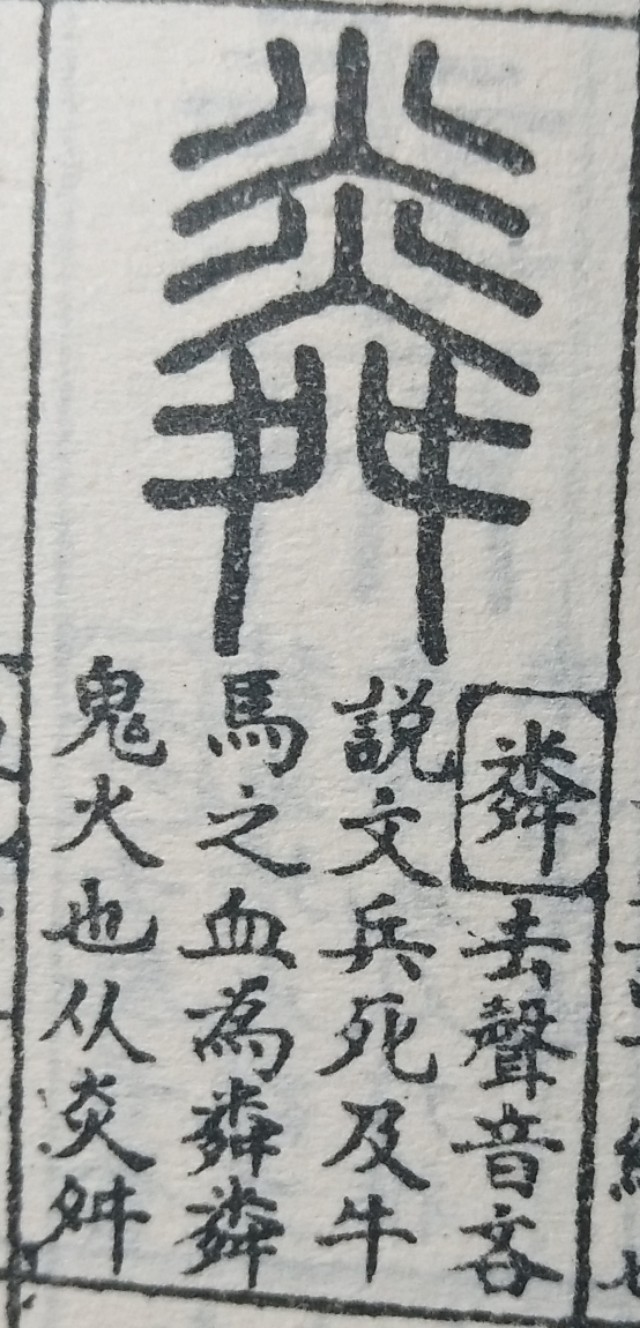 粦
粦去聲音吝
説文兵死及牛
馬之血為粦粦
鬼火也从炎舛